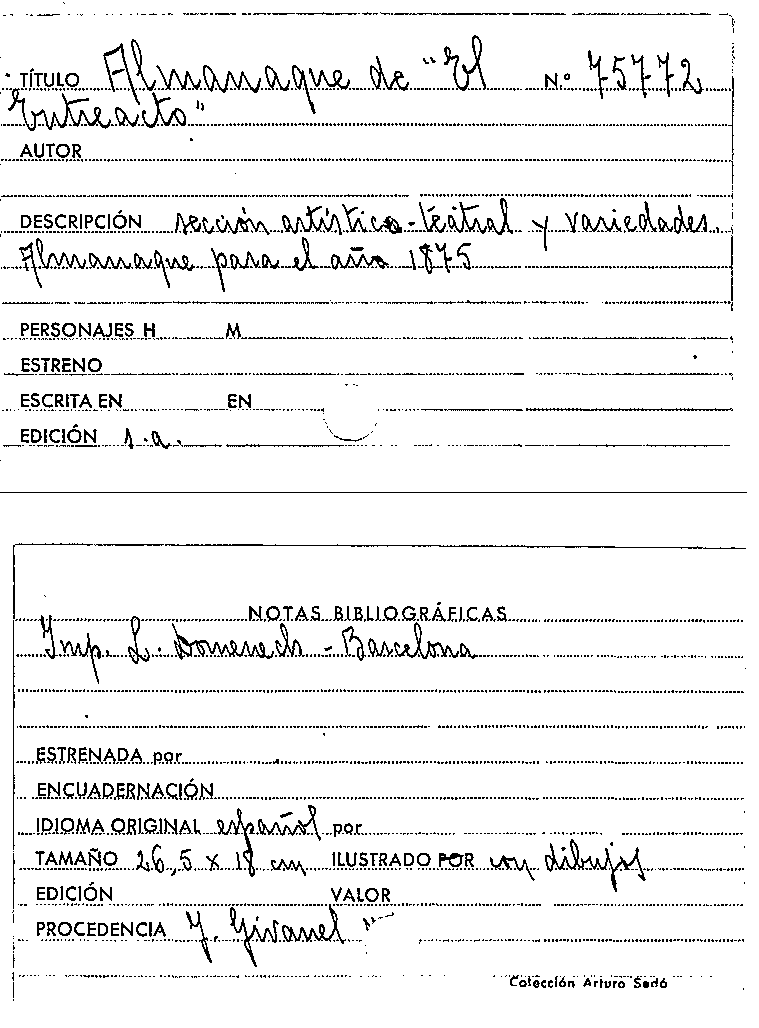 TÍTULO Almanaque de "El Nº 75772
Entreacto"
AUTOR
DESCRIPCIÓN sección artístico-teatral y variedades.
Almanaque para el año 1875
PERSONAJES H M
ESTRENO
ESCRITA EN EN
EDICIÓN s.a.
NOTAS BIBLIOGRÁFICAS
Imp. L. Domenech - Barcelona
ESTRENADA por
ENCUADERNACIÓN
IDIOMA ORIGINAL español por
TAMAÑO 26,5 x 18 cm ILUSTRADO POR con dibujos
EDICIÓN VALOR
PROCEDENCIA J. Givanel
Colección Arturo Sedó